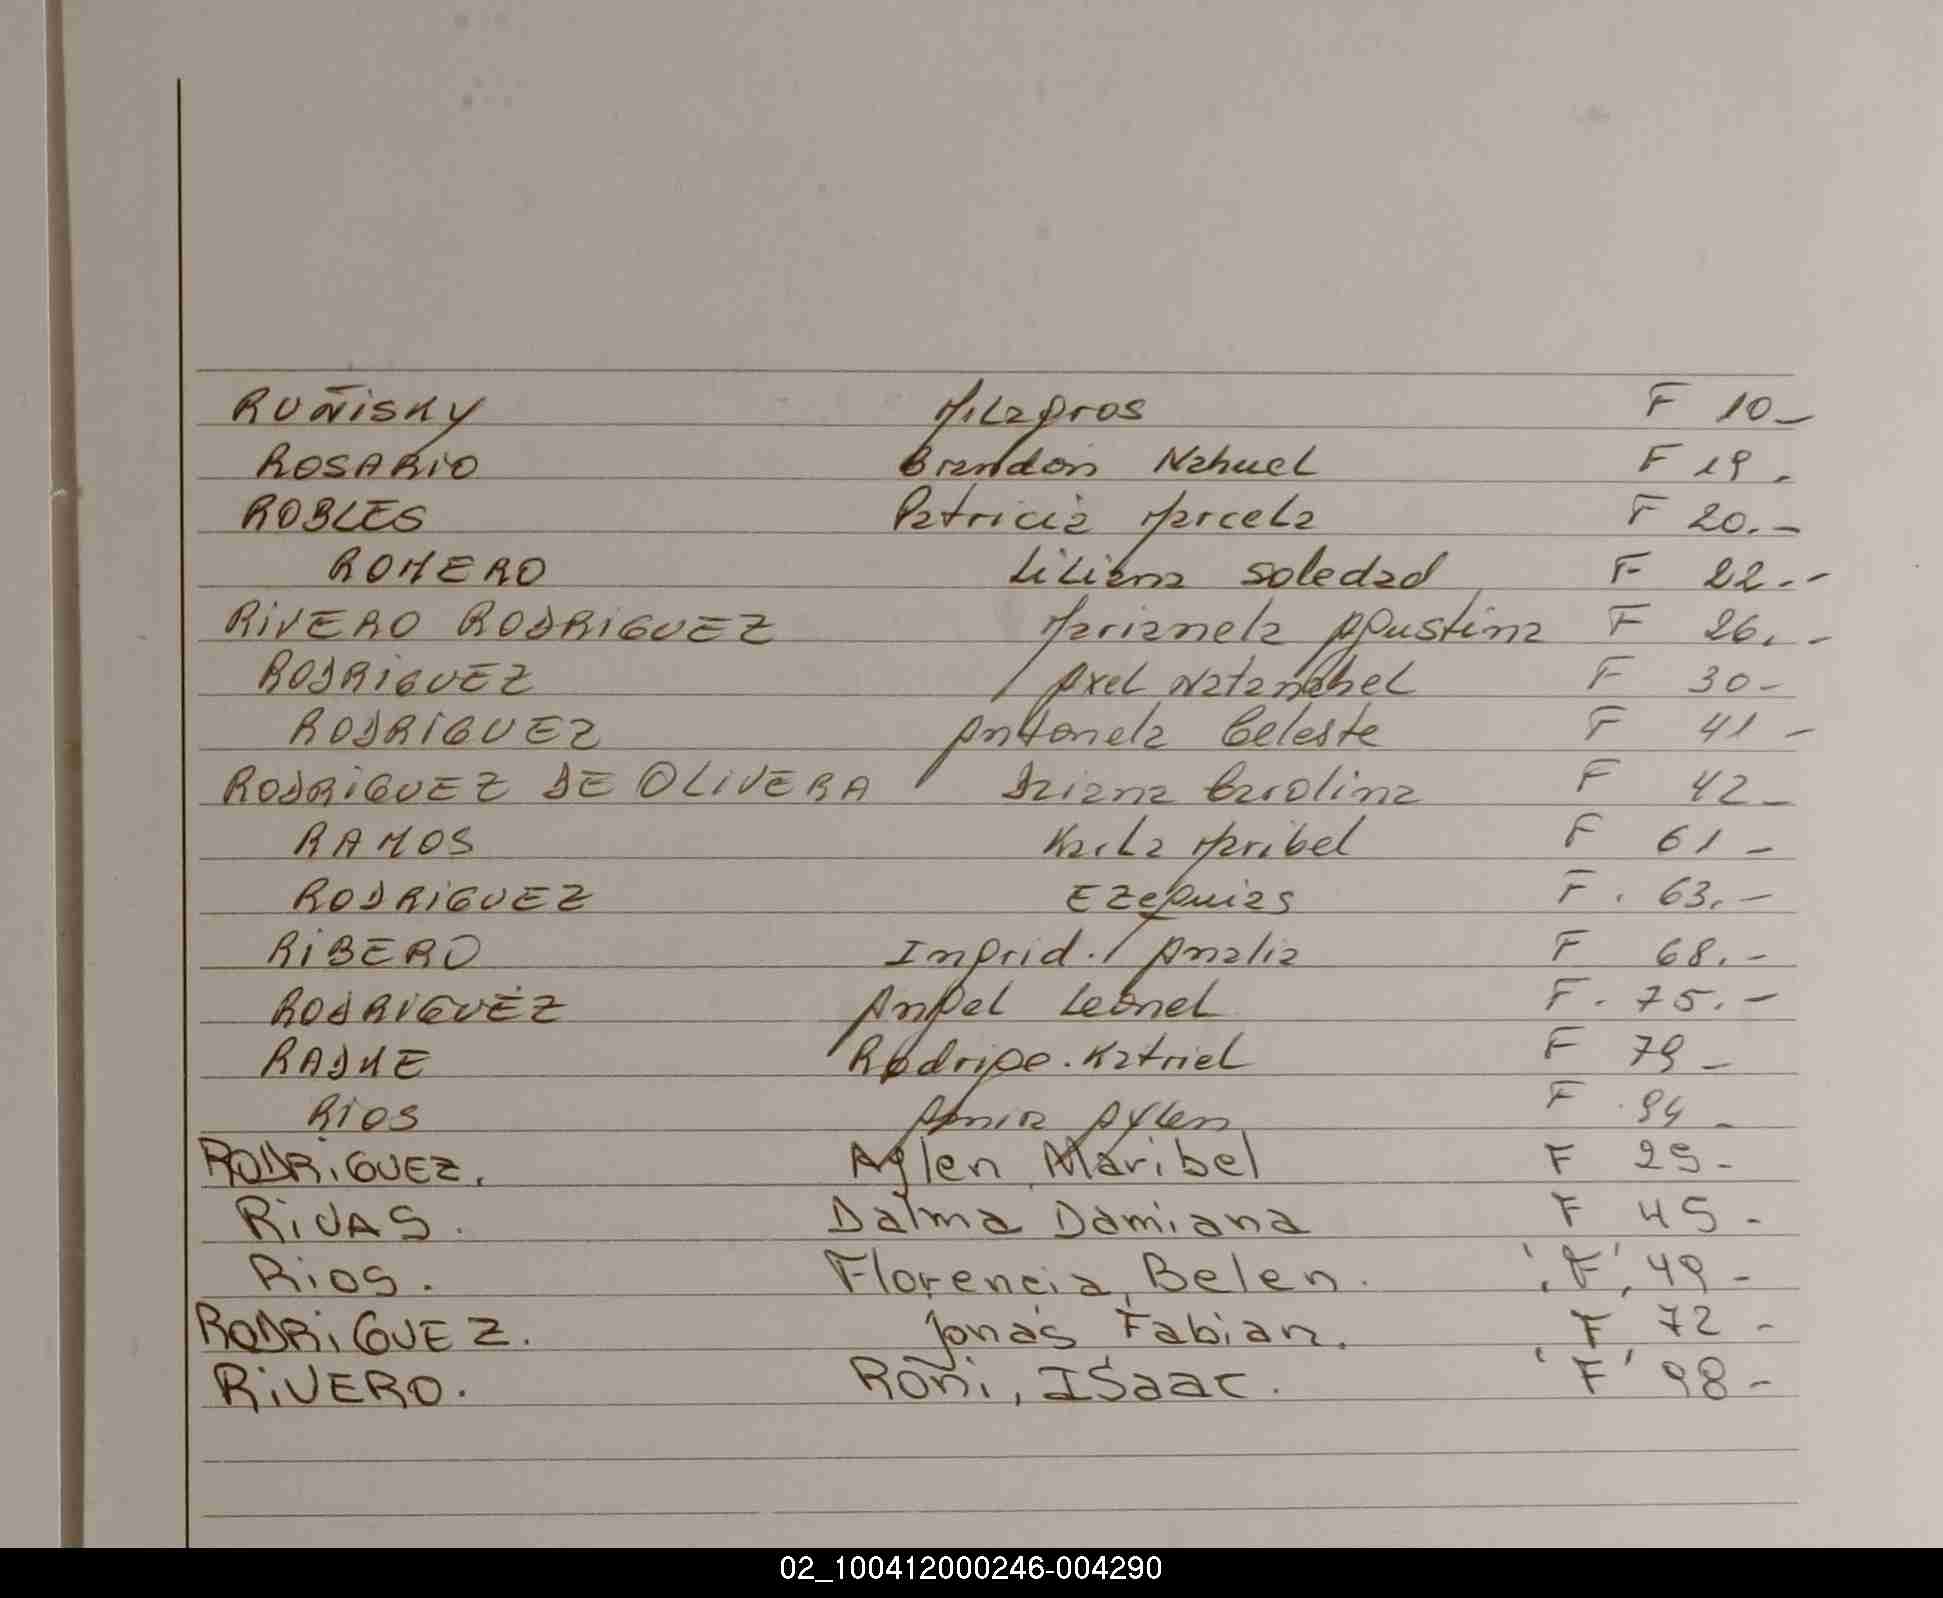 RUÑISKY Milagros F 10-
ROSARIO Brandon Nahuel F 19-
ROBLES Patricia Marcela F 20.-
ROMERO Liliana Soledad F 22.-
RIVERO RODRIGUEZ Marianela Agustina F 26.-
RODRIGUEZ Axel Natanahel F 30-
RODRIGUEZ Antonela Celeste F 41-
RODRIGUEZ DE OLIVERA Daiana Carolina F 42-
RAMOS Karla Maribel F 61-
RODRIGUEZ Ezequias F. 63.-
RIBERO Ingrid. Analia F 68.-
RODRIGUEZ Angel Leonel F. 75.-
Rodrigo. Katriel F 79-
RIOS Aylen F 94-
RODRIGUEZ. Aylen Maribel F 25-
RIVAS. Dalma Damiana F 45-
Rios. Florencia, Belen. 'F' 49-
RODRIGUEZ. Jonás Fabian. F 72-
RIVERO. Roni, ISaac. 'F' 98-
02_100412000246-004290